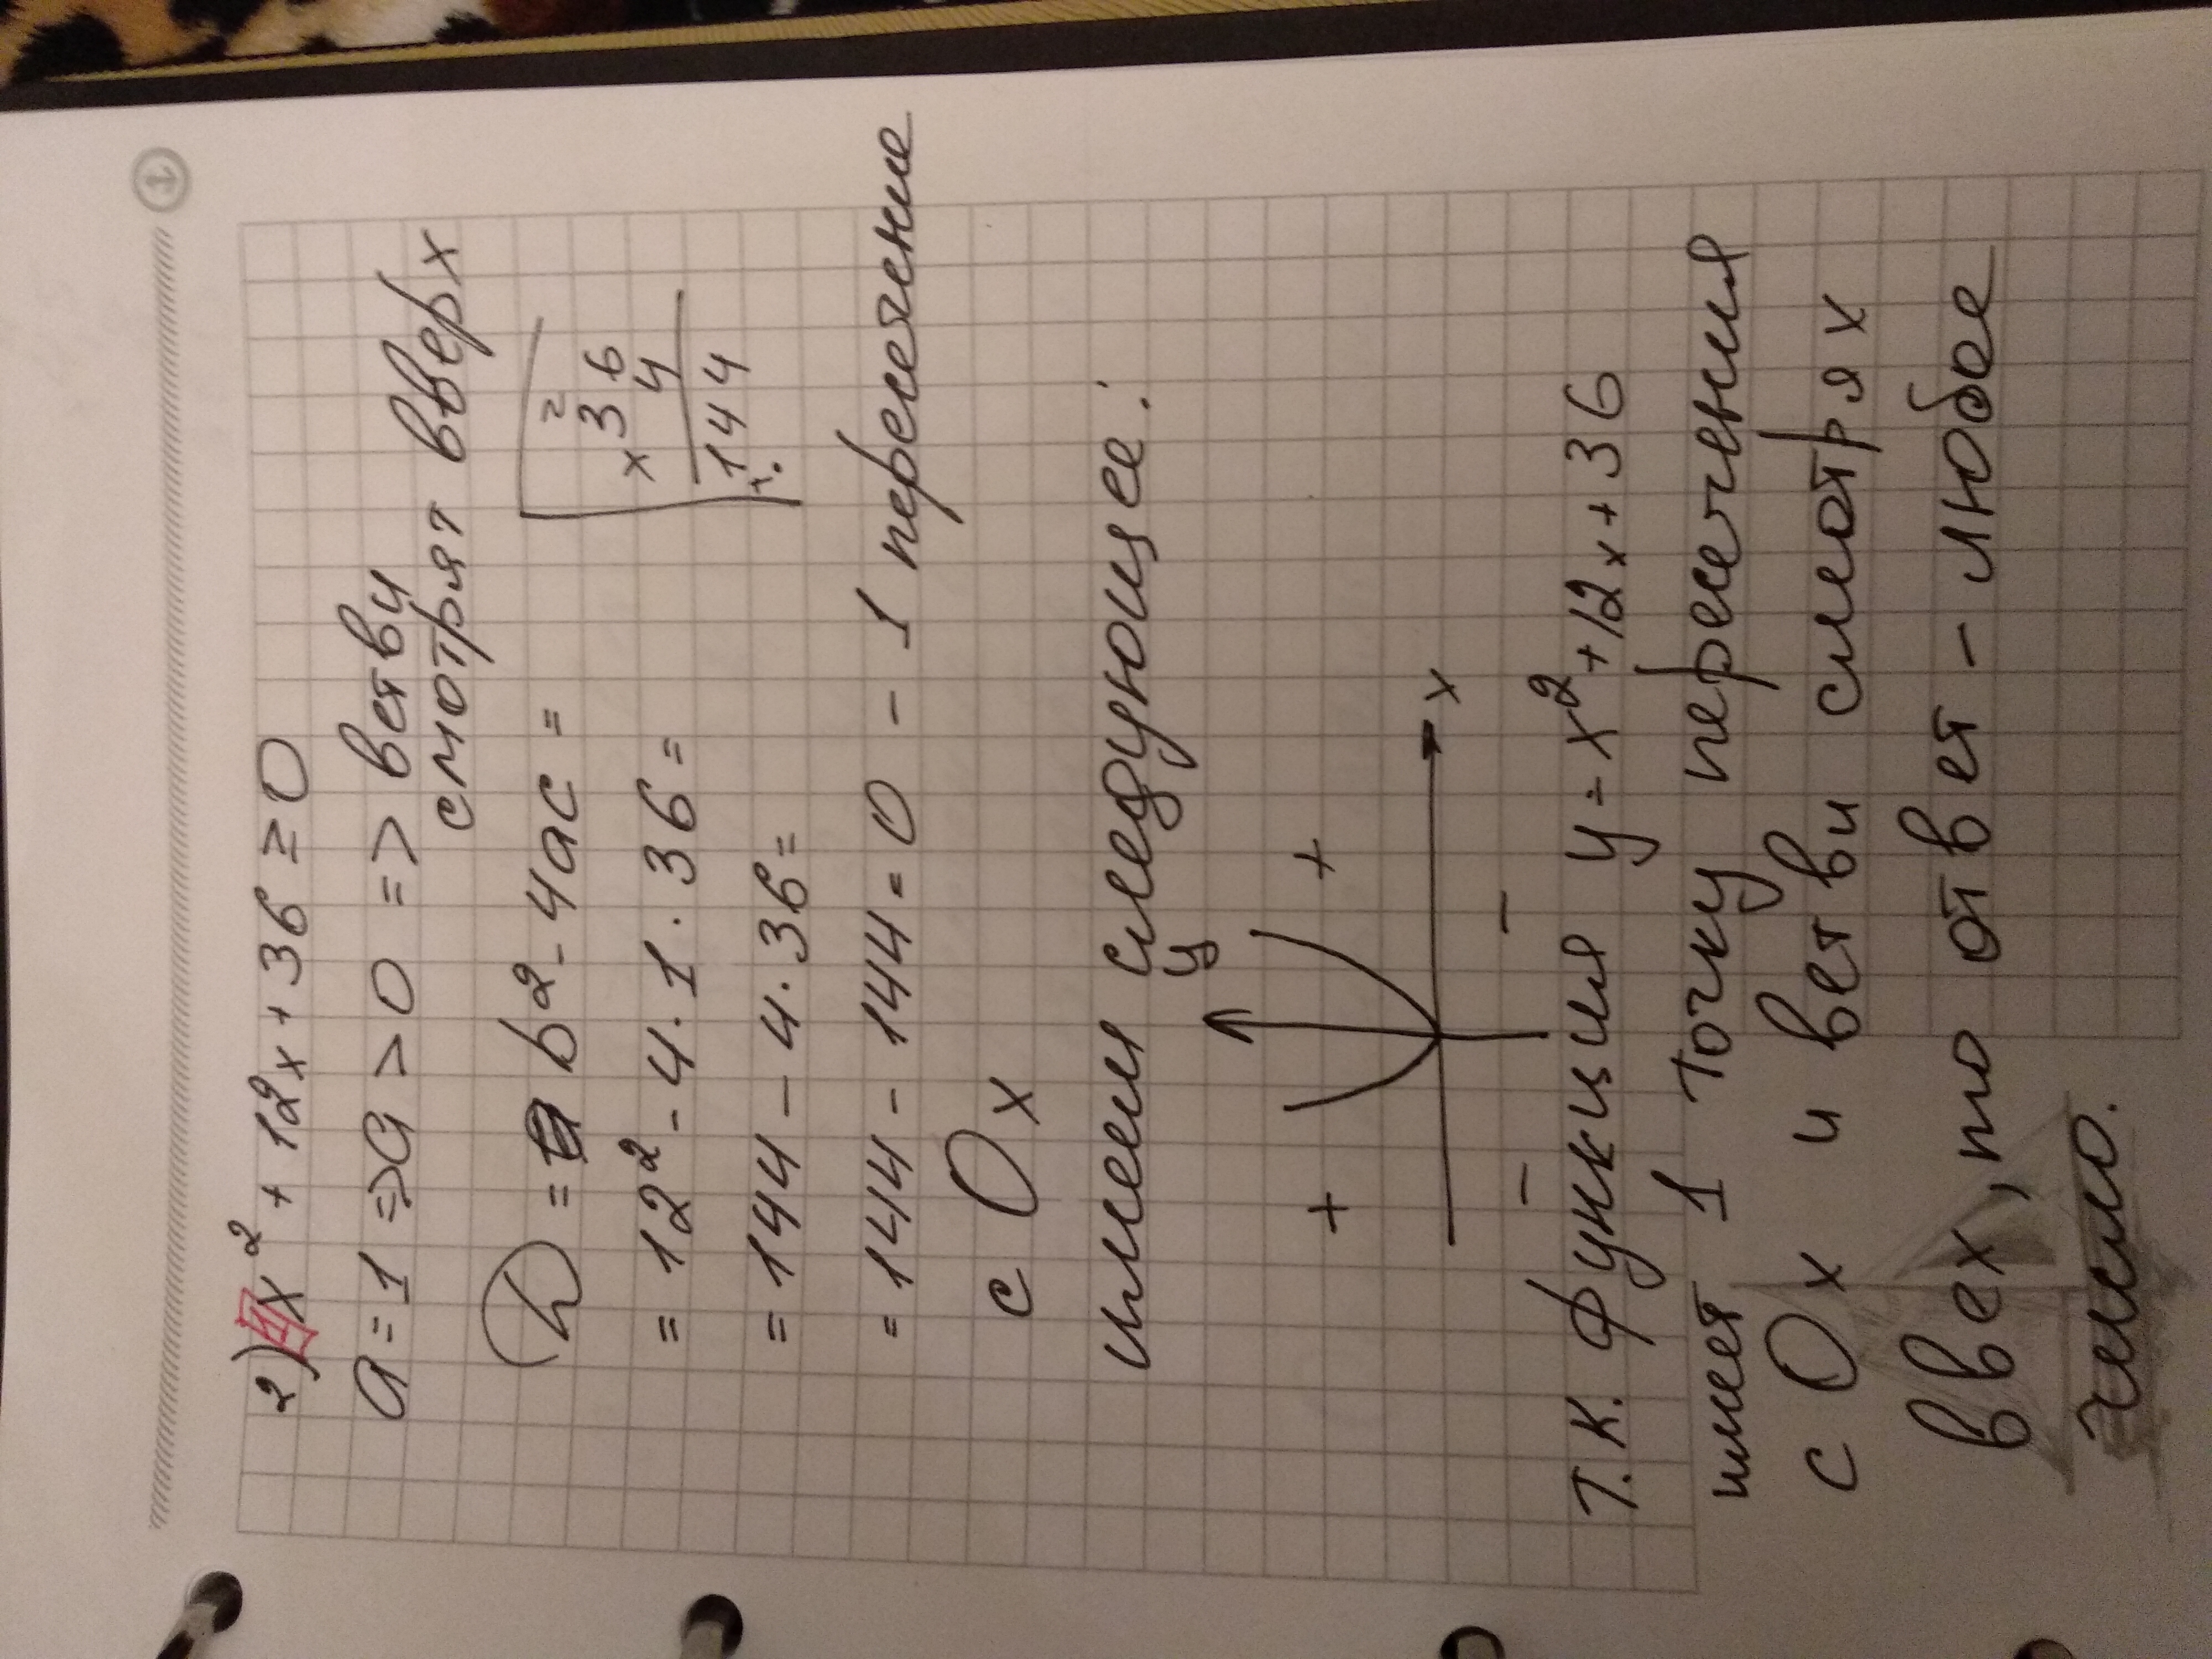 2) x² + 12x + 36 ≥ 0
a = 1 => a > 0 => ветви
смотрят вверх
D = b² - 4ac =
= 12² - 4 · 1 · 36 =
= 144 - 4 · 36 =
= 144 - 144 = 0 - 1 пересечение
с Ox
2
x 36
4
144
имеем следующее:
y
+ +
x
- -
т.к. функция y = x² + 12x + 36
имет 1 точку пересечения
с Ox и ветви смотрях
ввех, то ответ - любое
число.